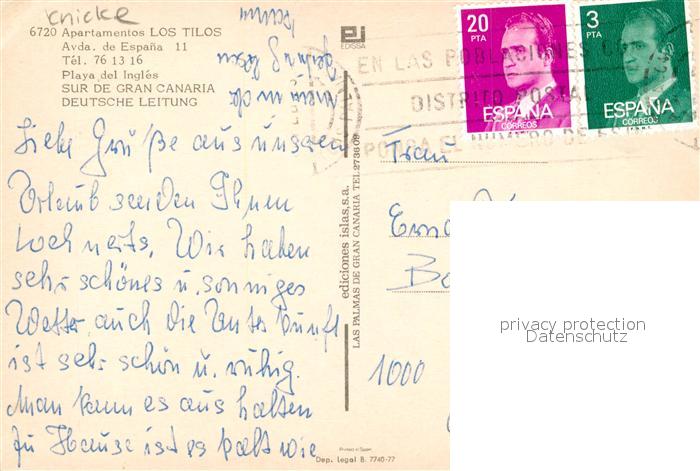 knicke
6720 Apartamentos LOS TILOS
Avda. de España 11
Tél. 76 13 16
Playa del Inglés
SUR DE GRAN CANARIA
DEUTSCHE LEITUNG
EDISSA
20
PTA
ESPAÑA
CORREOS
3
PTA
ESPAÑA
CORREOS
EN LAS POBLACIONES
DISTRITO POSTAL
PONGA EL NUMERO DE
Liebe Grüße aus unseren
Urlaub senden Ihnen
Wir haben
sehr schönes u. sonniges
Wetter, auch die Unterkunft
ist sehr schön u. ruhig.
Man kann es aushalten
zu Hause ist es kalt wie
ediciones islas, s.a.
LAS PALMAS DE GRAN CANARIA TEL. 273609
Frau
1000
Printed in Spain
Dep. Legal B. 7740-77
privacy protection
Datenschutz